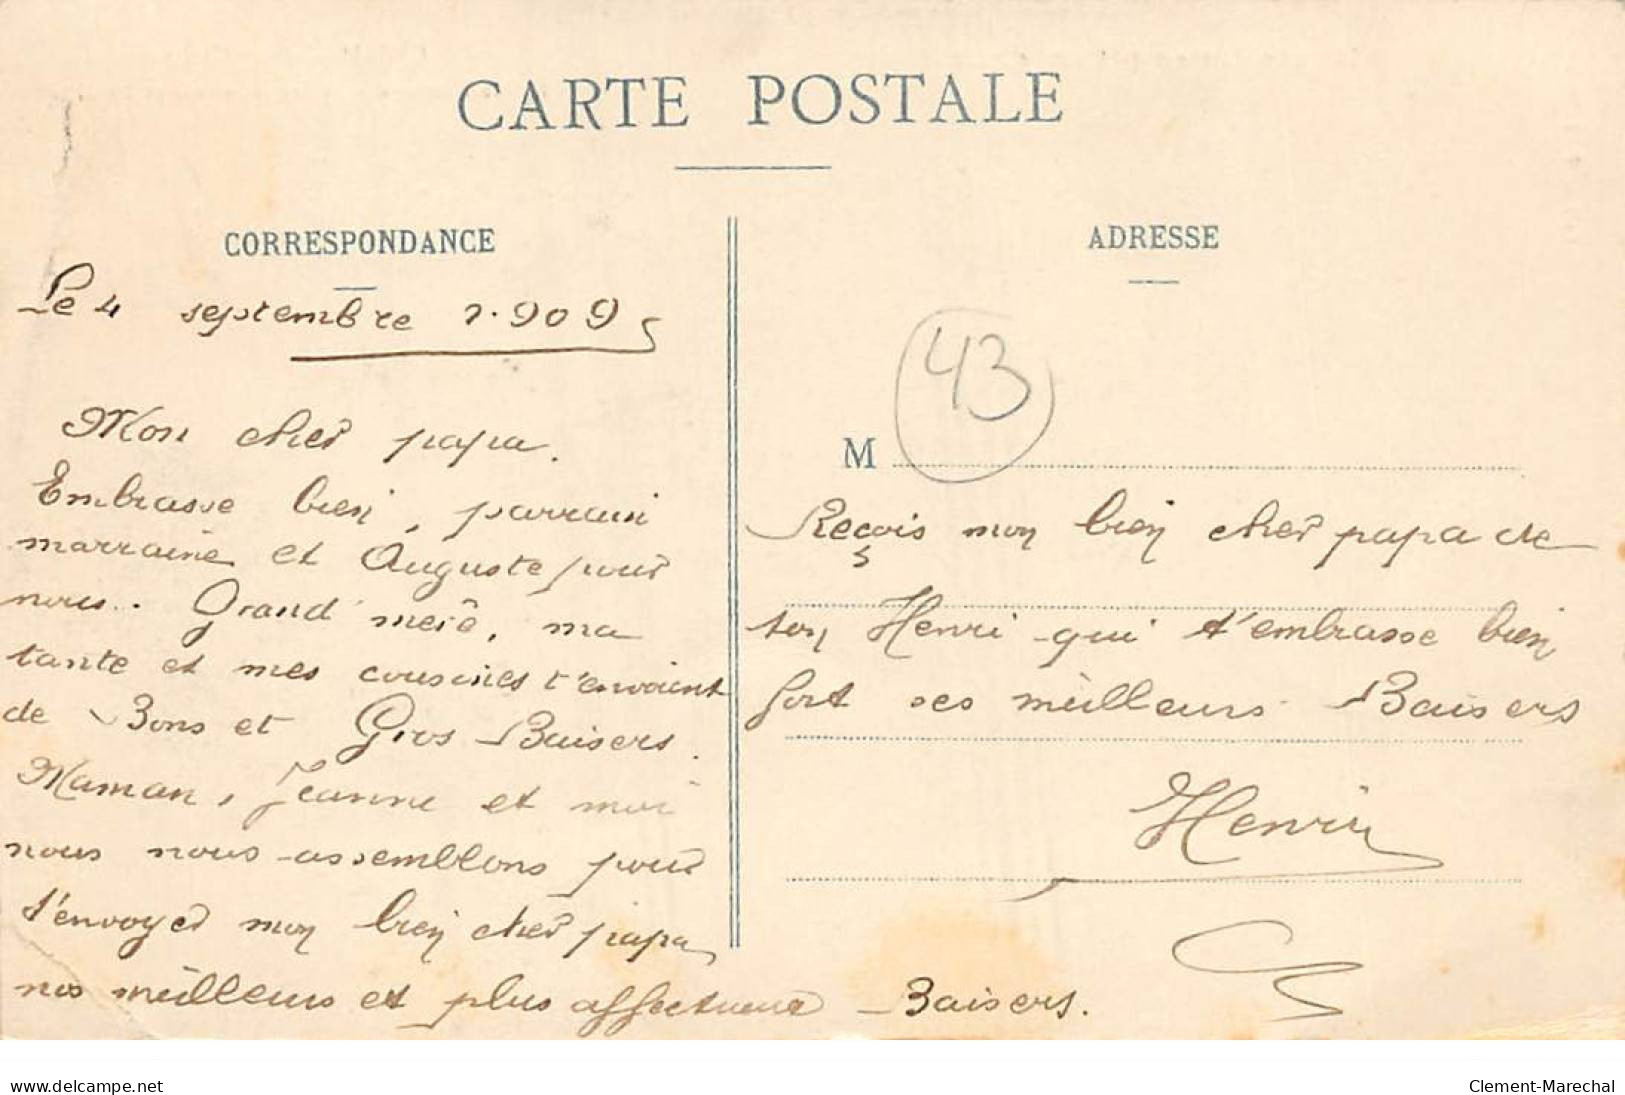 CARTE POSTALE
CORRESPONDANCE
Le 4 septembre 1.909
Mon cher papa.
Embrasse bien, parrain
marraine et Auguste pour
nous.. Grand' mère, ma
tante et mes cousines t'envoient
de Bons et Gros Baisers.
Maman, Jeanne et moi
nous nous assemblons pour
t'envoyer mon bien cher papa
nos meilleurs et plus affectueux Baisers.
ADRESSE
43
M
Reçois mon bien cher papa de
ton Henri qui t'embrasse bien
fort ses meilleurs Baisers
Henri
www.delcampe.net
Clement-Marechal